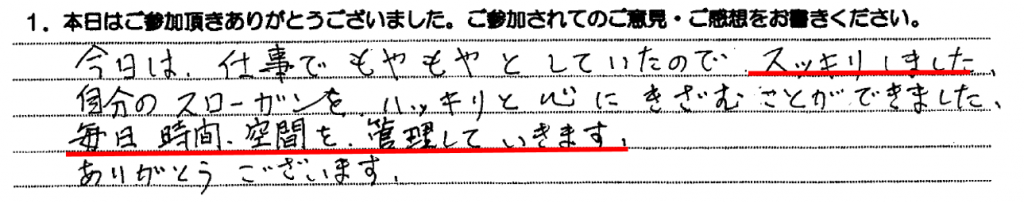 1．本日はご参加頂きありがとうございました。ご参加されてのご意見・ご感想をお書きください。
今日は、仕事でもやもやとしていたので、スッキリしました、
自分のスローガンを、ハッキリと心にきざむことができました、
毎日時間、空間を、管理していきます、
ありがとうございます、